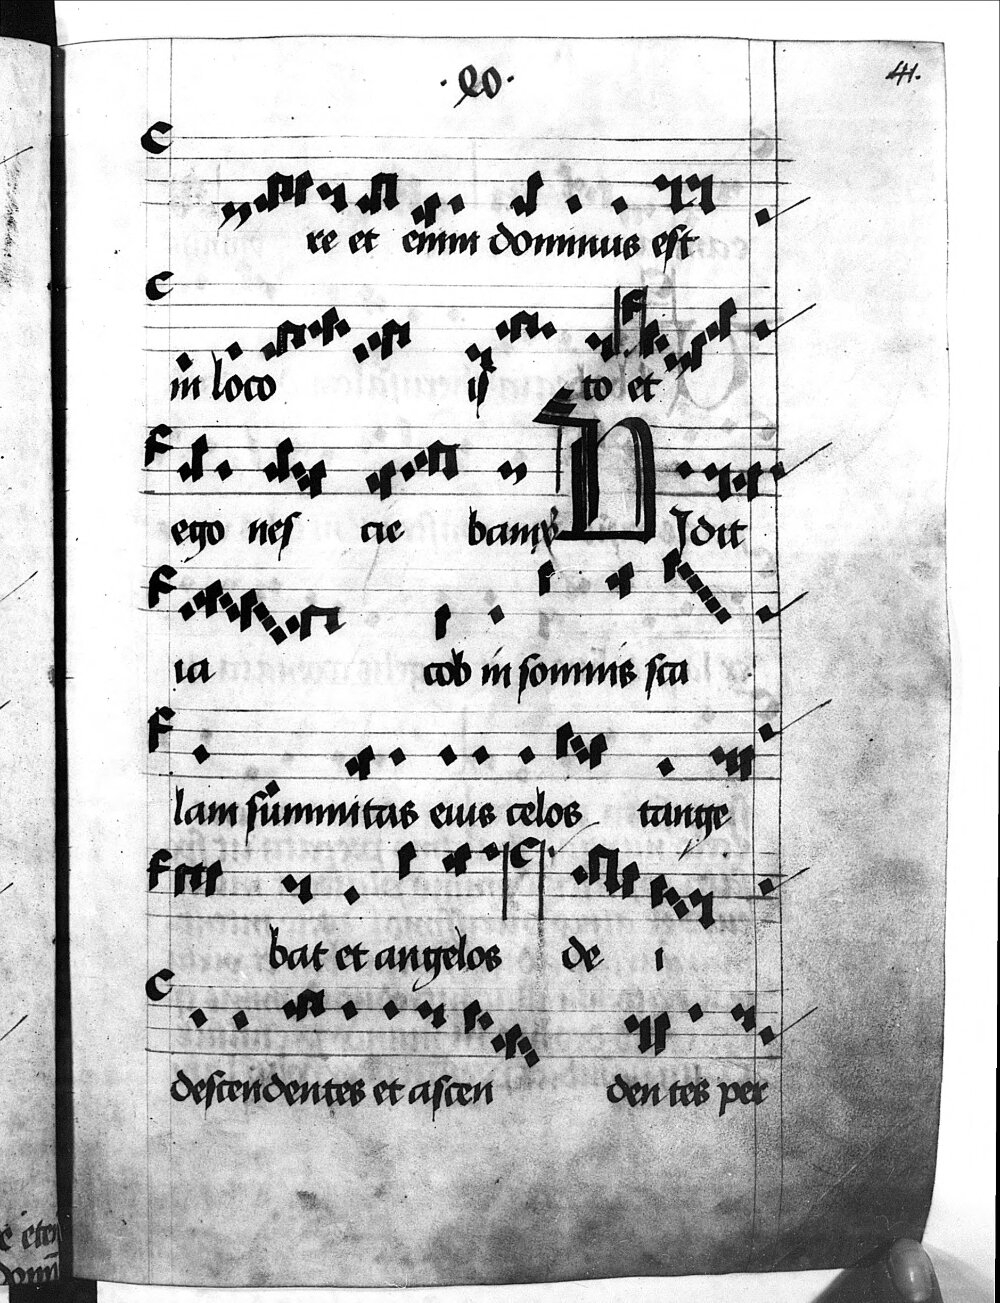 ·LO· 41.
re et enim dominus est
in loco is to et
ego nes cie bam ℣ Vidit
ia cob in somnis sca
lam summitas eius celos tange
bat et angelos de i
descendentes et ascen den tes per